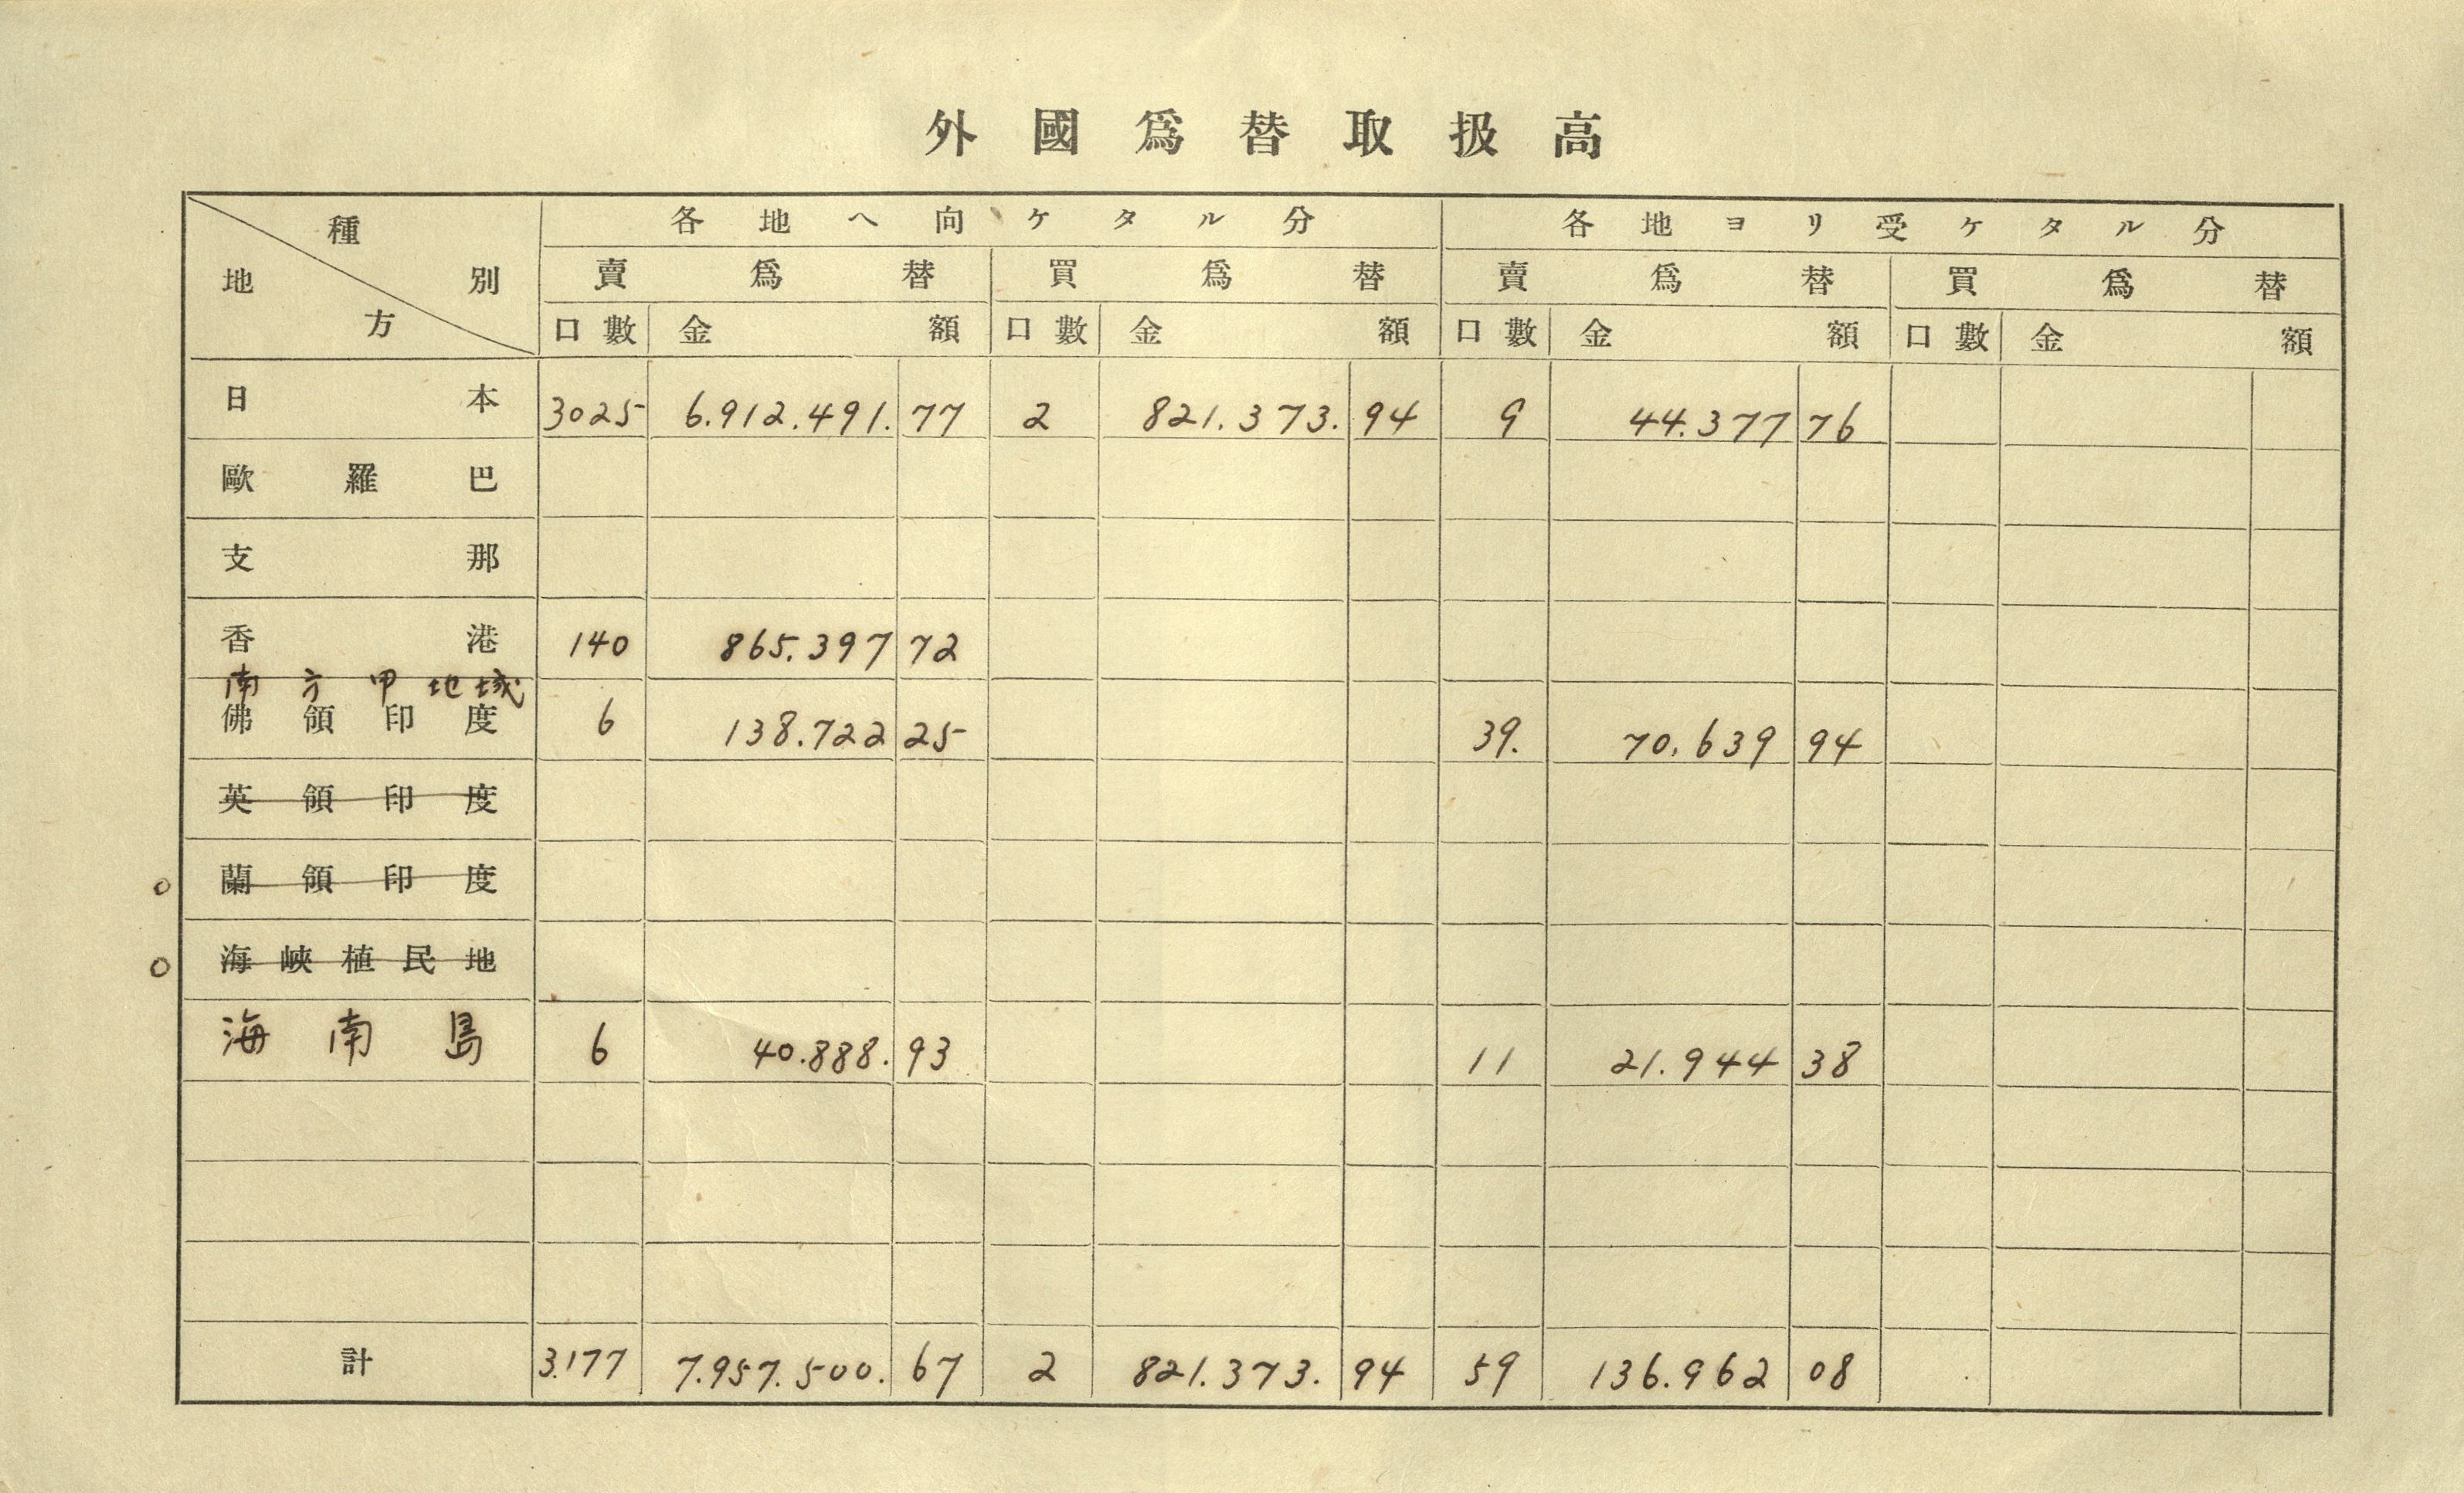 外國爲替取扱高
種別 地方 各地ヘ向ケタル分 各地ヨリ受ケタル分
賣爲替 買爲替 賣爲替 買爲替
口數 金額 口數 金額 口數 金額 口數 金額
日本 3025 6.912.491. 77 2 821.373. 94 9 44.377 76
歐羅巴
支那
香港 140 865.397 72
南方甲地域
佛領印度 6 138.722 25 39. 70.639 94
英領印度
蘭領印度
海峽植民地
海南島 6 40.888. 93 11 21.944 38
計 3.177 7.957.500. 67 2 821.373. 94 59 136.962 08